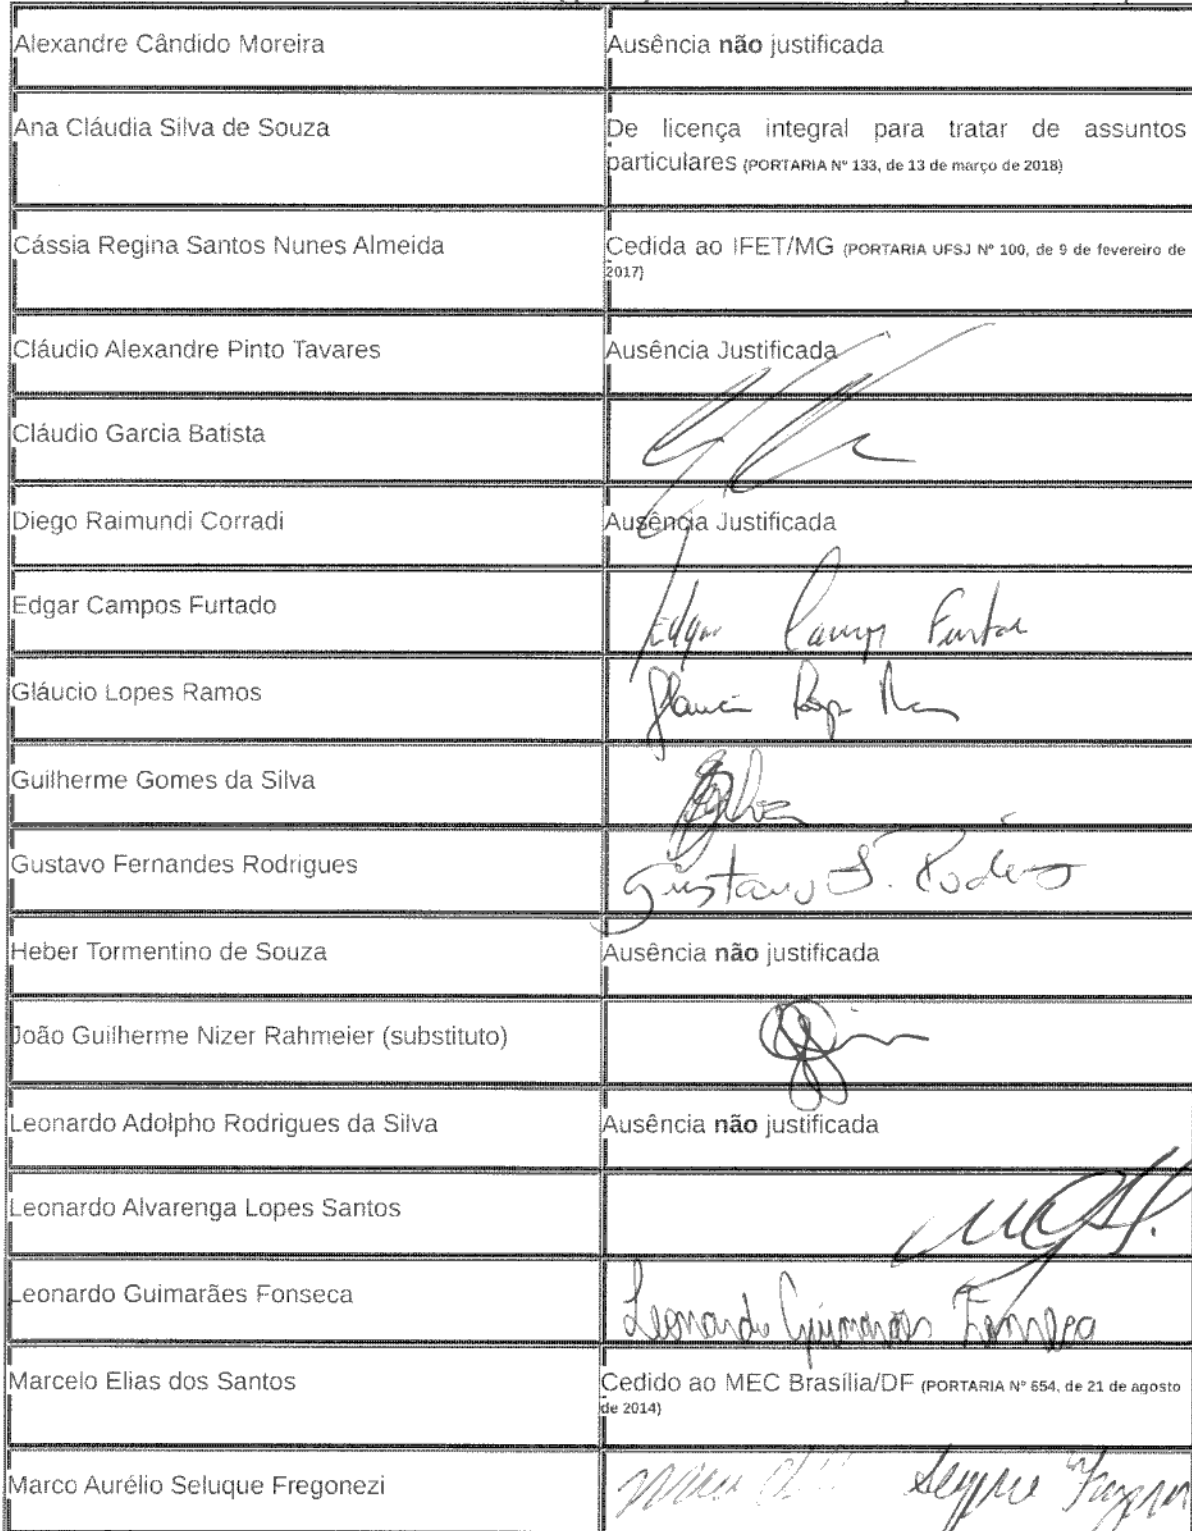 Alexandre Cândido Moreira
Ausência não justificada
Ana Cláudia Silva de Souza
De licença integral para tratar de assuntos
particulares (PORTARIA Nº 133, de 13 de março de 2018)
Cássia Regina Santos Nunes Almeida
Cedida ao IFET/MG (PORTARIA UFSJ Nº 100, de 9 de fevereiro de
2017)
Cláudio Alexandre Pinto Tavares
Ausência Justificada
Cláudio Garcia Batista
Diego Raimundi Corradi
Ausência Justificada
Edgar Campos Furtado
Edgar Campos Furtado
Gláucio Lopes Ramos
Guilherme Gomes da Silva
Gustavo Fernandes Rodrigues
Gustavo F. Rodrigues
Heber Tormentino de Souza
Ausência não justificada
João Guilherme Nizer Rahmeier (substituto)
Leonardo Adolpho Rodrigues da Silva
Ausência não justificada
Leonardo Alvarenga Lopes Santos
Leonardo Guimarães Fonseca
Leonardo Guimarães Fonseca
Marcelo Elias dos Santos
Cedido ao MEC Brasília/DF (PORTARIA Nº 654, de 21 de agosto
de 2014)
Marco Aurélio Seluque Fregonezi